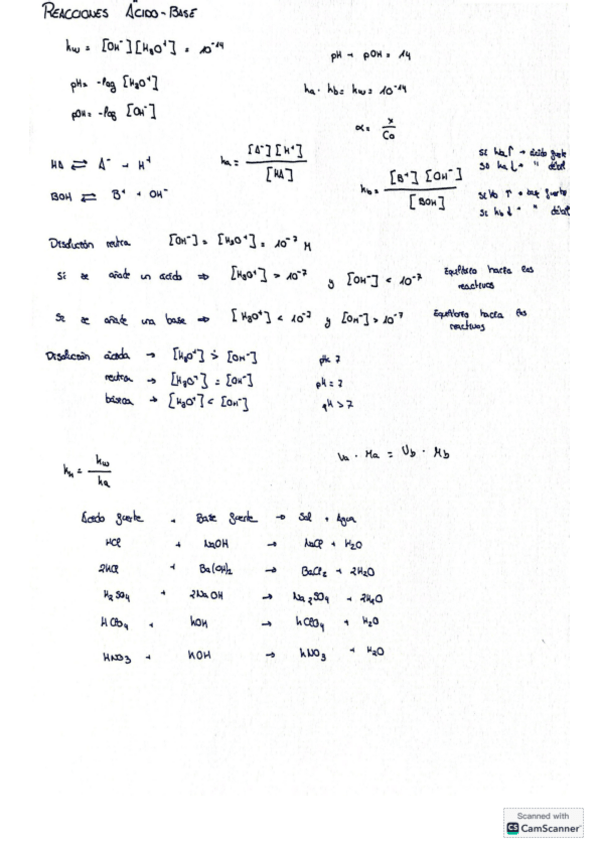 REACCIONES ÁCIDO-BASE
kw = [OH⁻][H₃O⁺] = 10⁻¹⁴
pH + pOH = 14
pH = -log [H₃O⁺]
ka · kb = kw = 10⁻¹⁴
pOH = -log [OH⁻]
α = x / Co
HA ⇌ A⁻ + H⁺
ka = [A⁻][H⁺] / [HA]
Si ka ↑ → ácido fuerte
Si ka ↓ → " débil
BOH ⇌ B⁺ + OH⁻
kb = [B⁺][OH⁻] / [BOH]
Si kb ↑ → base fuerte
Si kb ↓ → " débil
Disolución neutra [OH⁻] = [H₃O⁺] = 10⁻⁷ M
Si se añade un ácido ⇒ [H₃O⁺] > 10⁻⁷ y [OH⁻] < 10⁻⁷ Equilibrio hacia los reactivos
Si se añade una base ⇒ [H₃O⁺] < 10⁻⁷ y [OH⁻] > 10⁻⁷ Equilibrio hacia los reactivos
Disolución ácida → [H₃O⁺] > [OH⁻] pH< 7
neutra → [H₃O⁺] = [OH⁻] pH = 7
básica → [H₃O⁺] < [OH⁻] pH > 7
kh = kw / ka
Va · Ma = Vb · Mb
Ácido fuerte + Base fuerte → Sal + Agua
HCl + NaOH → NaCl + H₂O
2HCl + Ba(OH)₂ → BaCl₂ + 2H₂O
H₂SO₄ + 2NaOH → Na₂SO₄ + 2H₂O
HClO₄ + KOH → KClO₄ + H₂O
HNO₃ + KOH → KNO₃ + H₂O
Scanned with
CS CamScanner